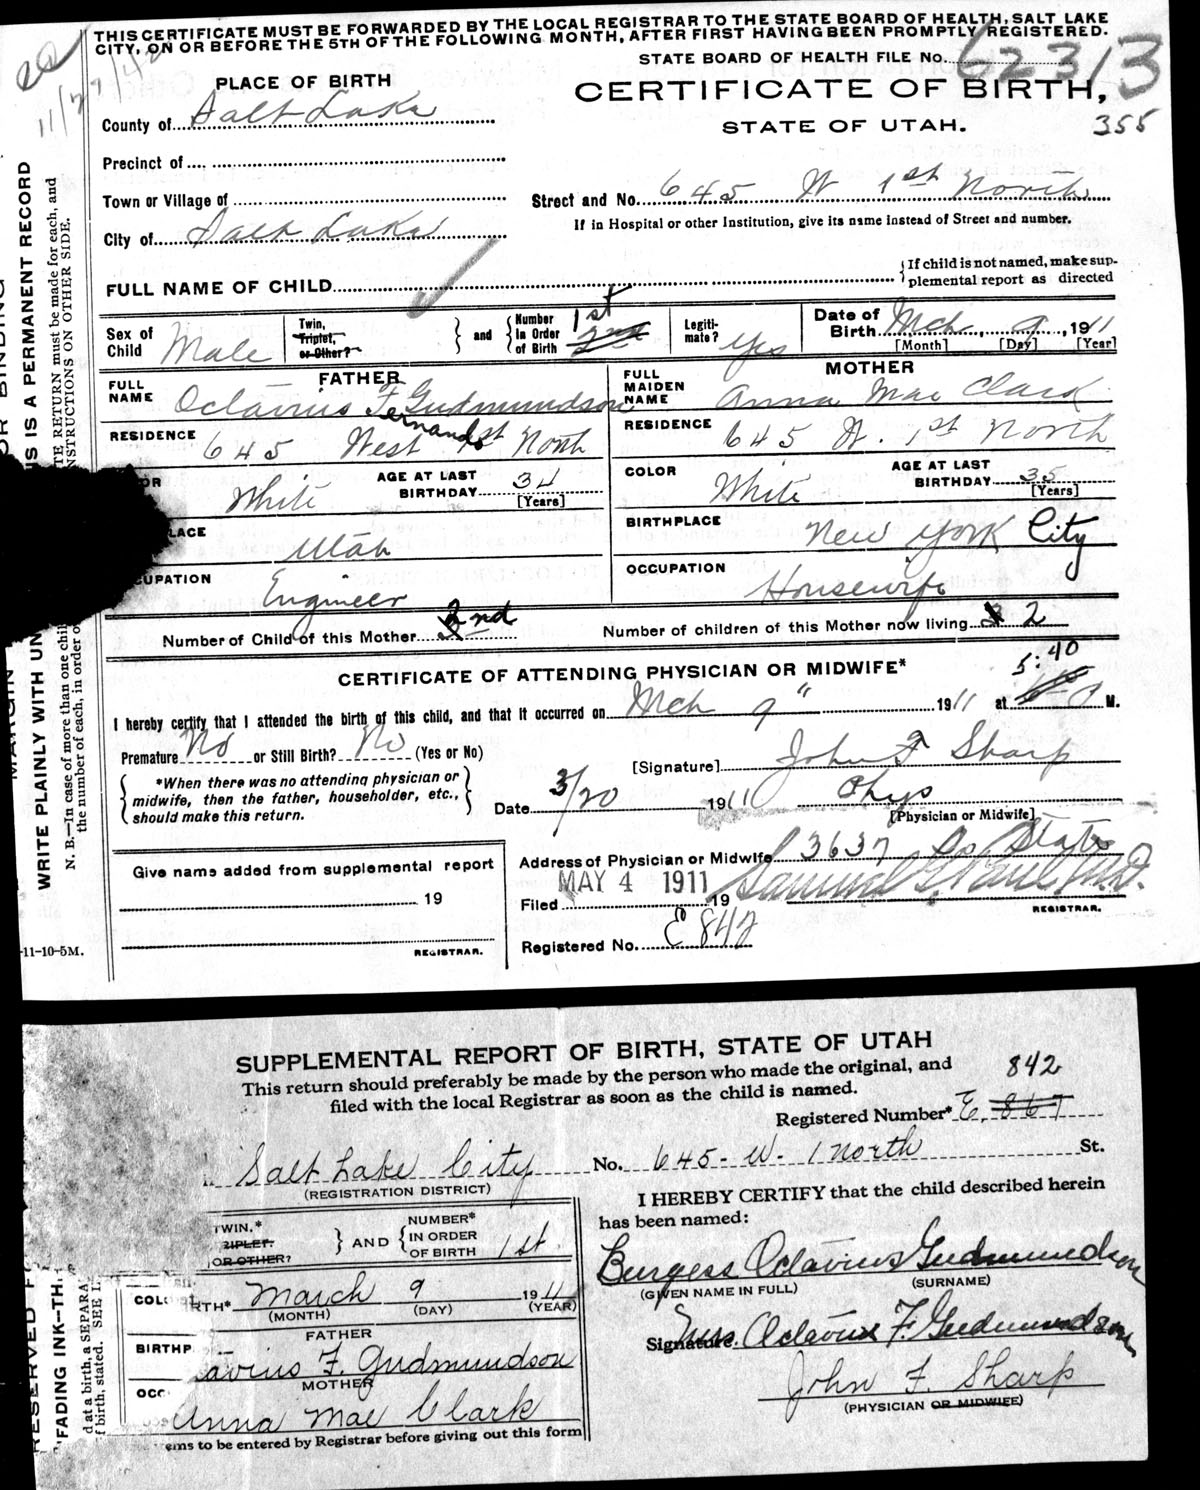 THIS CERTIFICATE MUST BE FORWARDED BY THE LOCAL REGISTRAR TO THE STATE BOARD OF HEALTH, SALT LAKE
CITY, ON OR BEFORE THE 5TH OF THE FOLLOWING MONTH, AFTER FIRST HAVING BEEN PROMPTLY REGISTERED.
11/27/42
STATE BOARD OF HEALTH FILE No. 62313
PLACE OF BIRTH
CERTIFICATE OF BIRTH,
355
County of Salt Lake
STATE OF UTAH.
Precinct of
Town or Village of
Street and No. 645 W 1st North
If in Hospital or other Institution, give its name instead of Street and number.
City of Salt Lake
FULL NAME OF CHILD
{If child is not named, make sup-
plemental report as directed
Sex of Child Male
Twin, Triplet, or Other?
} and { Number in Order of Birth 1st 2nd
Legiti-mate? Yes
Date of Birth Mch 9, 1911
[Month] [Day] [Year]
FATHER
MOTHER
FULL NAME Octavius F. Gudmundson
Fernand
FULL MAIDEN NAME Anna Mae Clark
RESIDENCE 645 West 1st North
RESIDENCE 645 W. 1st North
OR White
AGE AT LAST BIRTHDAY 34 [Years]
COLOR White
AGE AT LAST BIRTHDAY 35 [Years]
LACE Utah
BIRTHPLACE New York City
CUPATION Engineer
OCCUPATION Housewife
Number of Child of this Mother 2nd
Number of children of this Mother now living 2
CERTIFICATE OF ATTENDING PHYSICIAN OR MIDWIFE*
5:40
I hereby certify that I attended the birth of this child, and that it occurred on Mch 9" 1911 at P M.
Premature No or Still Birth? No (Yes or No)
[Signature] John F Sharp
{ *When there was no attending physician or
midwife, then the father, householder, etc.,
should make this return. }
Date 3/20 1911 Phys
[Physician or Midwife]
Address of Physician or Midwife 3637 So State
Give name added from supplemental report
19
REGISTRAR.
Filed MAY 4 1911 19 Samuel G. Paul M.D.
REGISTRAR.
Registered No. E 842
-11-10-5M.
OR BINDING
MARGIN
WRITE PLAINLY WITH UN
IS IS A PERMANENT RECORD
N. B.—In case of more than one chil
TE RETURN must be made for each, and
the number of each, in order o
NSTRUCTIONS ON OTHER SIDE.
SUPPLEMENTAL REPORT OF BIRTH, STATE OF UTAH
This return should preferably be made by the person who made the original, and
filed with the local Registrar as soon as the child is named.
842
Registered Number* E. 867
Salt Lake City
(REGISTRATION DISTRICT)
No. 645- W. 1 North St.
I HEREBY CERTIFY that the child described herein
has been named:
TWIN.*
RIPLET.
OR OTHER?
} AND { NUMBER* IN ORDER OF BIRTH 1st
Burgess Octavius Gudmundson
(GIVEN NAME IN FULL) (SURNAME)
COLO
RTH* March 9 1911
(MONTH) (DAY) (YEAR)
FATHER
BIRTHP
avius F. Gudmundson
MOTHER
OCC
Anna Mae Clark
ems to be entered by Registrar before giving out this form
Signature Mrs. Octavius F. Gudmundson
John F. Sharp
(PHYSICIAN OR MIDWIFE)
RESERVED F
FADING INK—TH
d at a birth, a SEPARA
f birth, stated. SEE I